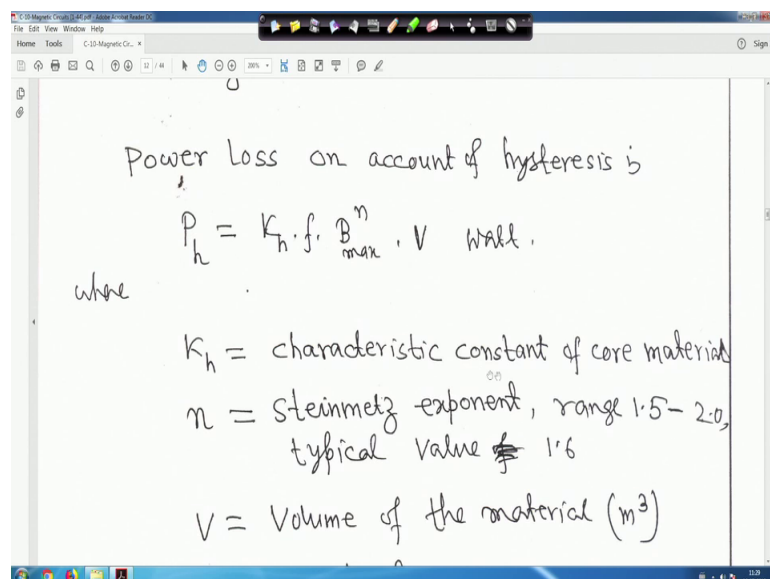 C-10-Magnetic Circuits (1-44).pdf - Adobe Acrobat Reader DC
File Edit View Window Help
Home Tools C-10-Magnetic Cir... × Sign
12 / 44 200%
Power Loss on account of hysteresis is
P_h = K_h . f . B_max^n . V watt.
where
K_h = characteristic constant of core material
n = Steinmetz exponent, range 1.5 - 2.0,
typical value 1.6
V = Volume of the material (m³)
11:29